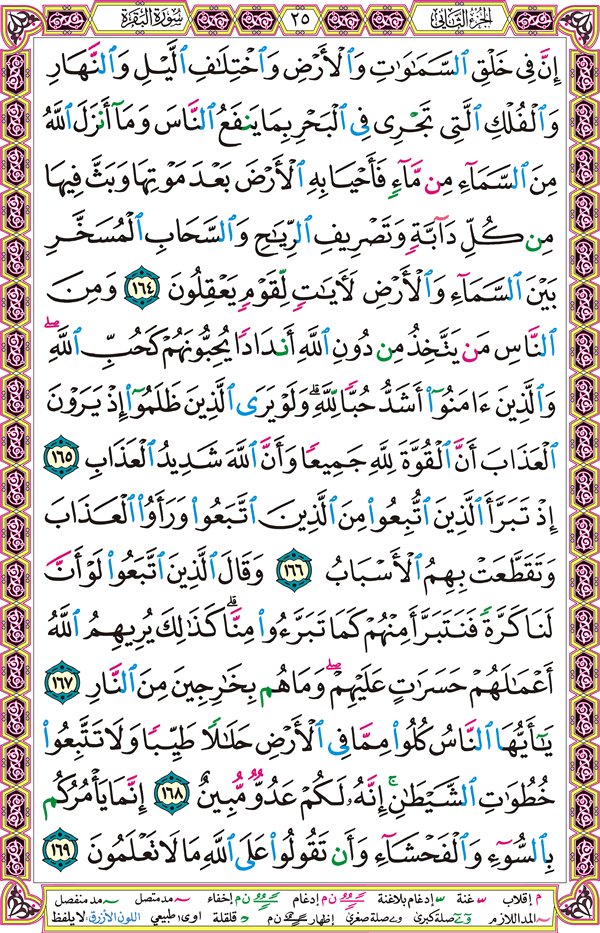 الجزء الثاني ٢٥ سورة البقرة
إِنَّ فِى خَلْقِ ٱلسَّمَـٰوَٰتِ وَٱلْأَرْضِ وَٱخْتِلَـٰفِ ٱلَّيْلِ وَٱلنَّهَارِ
وَٱلْفُلْكِ ٱلَّتِى تَجْرِى فِى ٱلْبَحْرِ بِمَا يَنفَعُ ٱلنَّاسَ وَمَآ أَنزَلَ ٱللَّهُ
مِنَ ٱلسَّمَآءِ مِن مَّآءٍ فَأَحْيَا بِهِ ٱلْأَرْضَ بَعْدَ مَوْتِهَا وَبَثَّ فِيهَا
مِن كُلِّ دَآبَّةٍ وَتَصْرِيفِ ٱلرِّيَـٰحِ وَٱلسَّحَابِ ٱلْمُسَخَّرِ
بَيْنَ ٱلسَّمَآءِ وَٱلْأَرْضِ لَـَٔايَـٰتٍ لِّقَوْمٍ يَعْقِلُونَ ١٦٤ وَمِنَ
ٱلنَّاسِ مَن يَتَّخِذُ مِن دُونِ ٱللَّهِ أَندَادًا يُحِبُّونَهُمْ كَحُبِّ ٱللَّهِ ۖ
وَٱلَّذِينَ ءَامَنُوٓا۟ أَشَدُّ حُبًّا لِّلَّهِ ۗ وَلَوْ يَرَى ٱلَّذِينَ ظَلَمُوٓا۟ إِذْ يَرَوْنَ
ٱلْعَذَابَ أَنَّ ٱلْقُوَّةَ لِلَّهِ جَمِيعًا وَأَنَّ ٱللَّهَ شَدِيدُ ٱلْعَذَابِ ١٦٥
إِذْ تَبَرَّأَ ٱلَّذِينَ ٱتُّبِعُوا۟ مِنَ ٱلَّذِينَ ٱتَّبَعُوا۟ وَرَأَوُا۟ ٱلْعَذَابَ
وَتَقَطَّعَتْ بِهِمُ ٱلْأَسْبَابُ ١٦٦ وَقَالَ ٱلَّذِينَ ٱتَّبَعُوا۟ لَوْ أَنَّ
لَنَا كَرَّةً فَنَتَبَرَّأَ مِنْهُمْ كَمَا تَبَرَّءُوا۟ مِنَّا ۗ كَذَٰلِكَ يُرِيهِمُ ٱللَّهُ
أَعْمَـٰلَهُمْ حَسَرَٰتٍ عَلَيْهِمْ ۖ وَمَا هُم بِخَـٰرِجِينَ مِنَ ٱلنَّارِ ١٦٧
يَـٰٓأَيُّهَا ٱلنَّاسُ كُلُوا۟ مِمَّا فِى ٱلْأَرْضِ حَلَـٰلًا طَيِّبًا وَلَا تَتَّبِعُوا۟
خُطُوَٰتِ ٱلشَّيْطَـٰنِ ۚ إِنَّهُۥ لَكُمْ عَدُوٌّ مُّبِينٌ ١٦٨ إِنَّمَا يَأْمُرُكُم
بِٱلسُّوٓءِ وَٱلْفَحْشَآءِ وَأَن تَقُولُوا۟ عَلَى ٱللَّهِ مَا لَا تَعْلَمُونَ ١٦٩
م إقلاب غنة إدغام بلاغنة ن م إدغام إخفاء مد متصل مد منفصل
المد اللازم صلة كبرى صلة صغرى إظهار ن م قلقلة اوى طبيعي اللون الأزرق: لا يلفظ